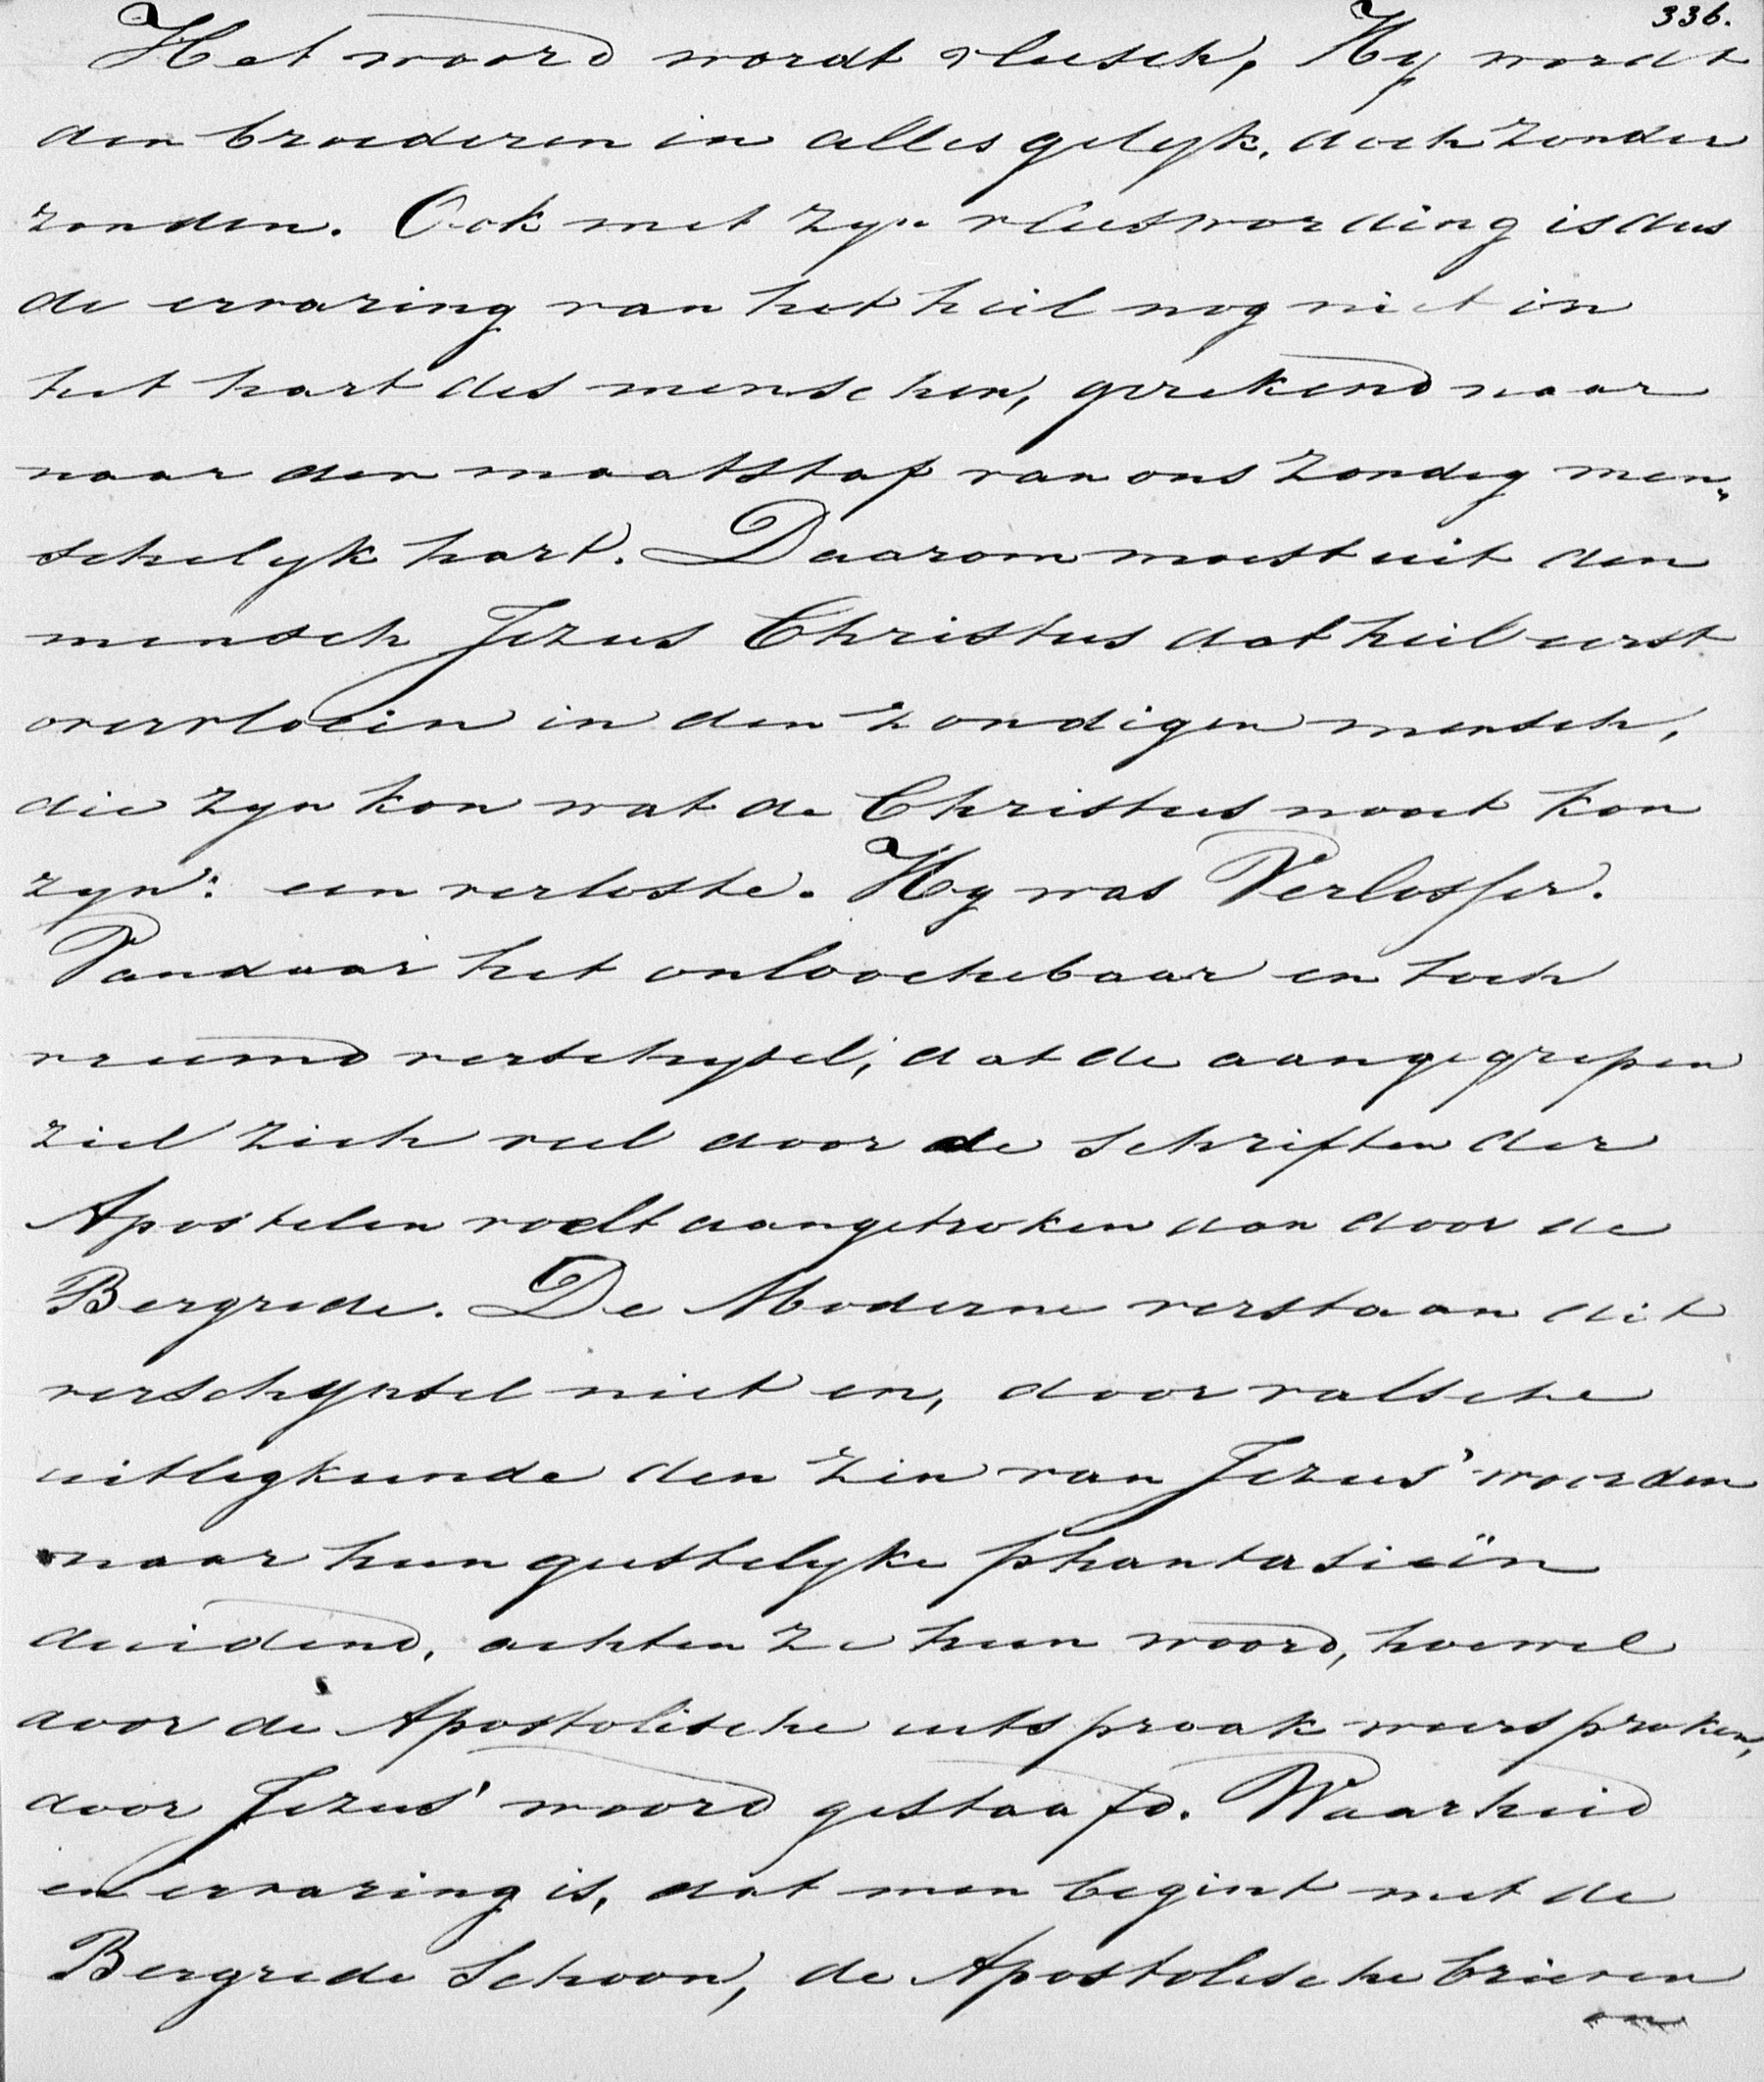 336.
Het woord wordt vleesch, Hy wordt
den broederen in alles gelyk, doch zonder
zonden. Ook met zyn vleeswording is dus
de ervaring van het heil nog niet in
het hart des menschen, gerekend naar
naar den maatstaf van ons zondig men„
schelyk hart. Daarom moest uit den
mensch Jezus Christus dat heil eerst
overvloeien in den zondigen mensch,
die zyn kon wat de Christus nooit kon
zyn: een verloste. Hy was Verlosser.
Vandaar het onloochebaar en toch
vreemd verschysel, dat de aangegrepen
ziel zich veel door de schriften der
Apostelen voelt aangetroken dan door de
Bergrede. De Moderne verstaan dit
verschynsel niet en, door valsche
uitlegkunde den zin van Jezus' woorden
naar hun geestelyke phantasieën
duidend, achten ze hun woord, hoewel
door de Apostolische uitspraak weersproken,
door Jezus' woord gestaafd. Waarheid
en ervaring is, dat men begint met de
Bergrede schoon, de Apostolische brieven
on